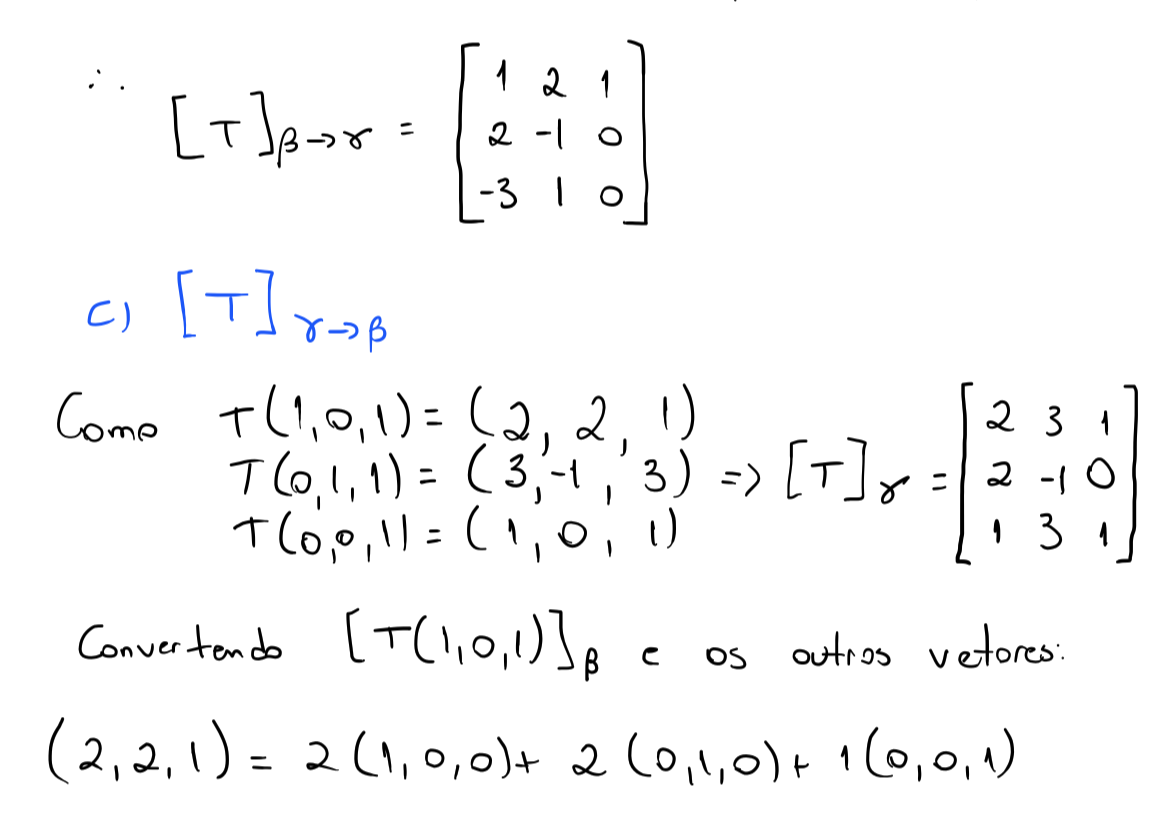 ∴ [T]β→γ = [1 2 1
2 -1 0
-3 1 0]
c) [T]γ→β
Como T(1,0,1) = (2, 2, 1)
T(0,1,1) = (3, -1, 3) => [T]γ = [2 3 1
2 -1 0
1 3 1]
T(0,0,1) = (1, 0, 1)
Convertendo [T(1,0,1)]β e os outros vetores:
(2,2,1) = 2(1,0,0) + 2(0,1,0) + 1(0,0,1)